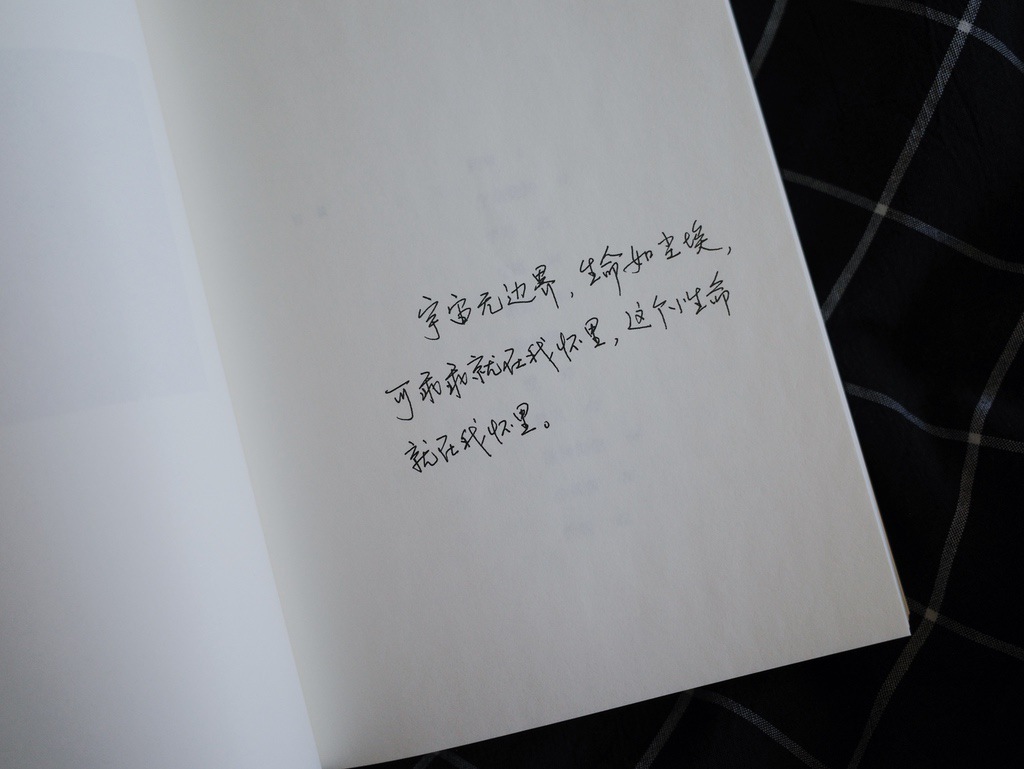 宇宙无边界，生命如尘埃，
可乖乖就在我怀里，这个小生命
就在我怀里。